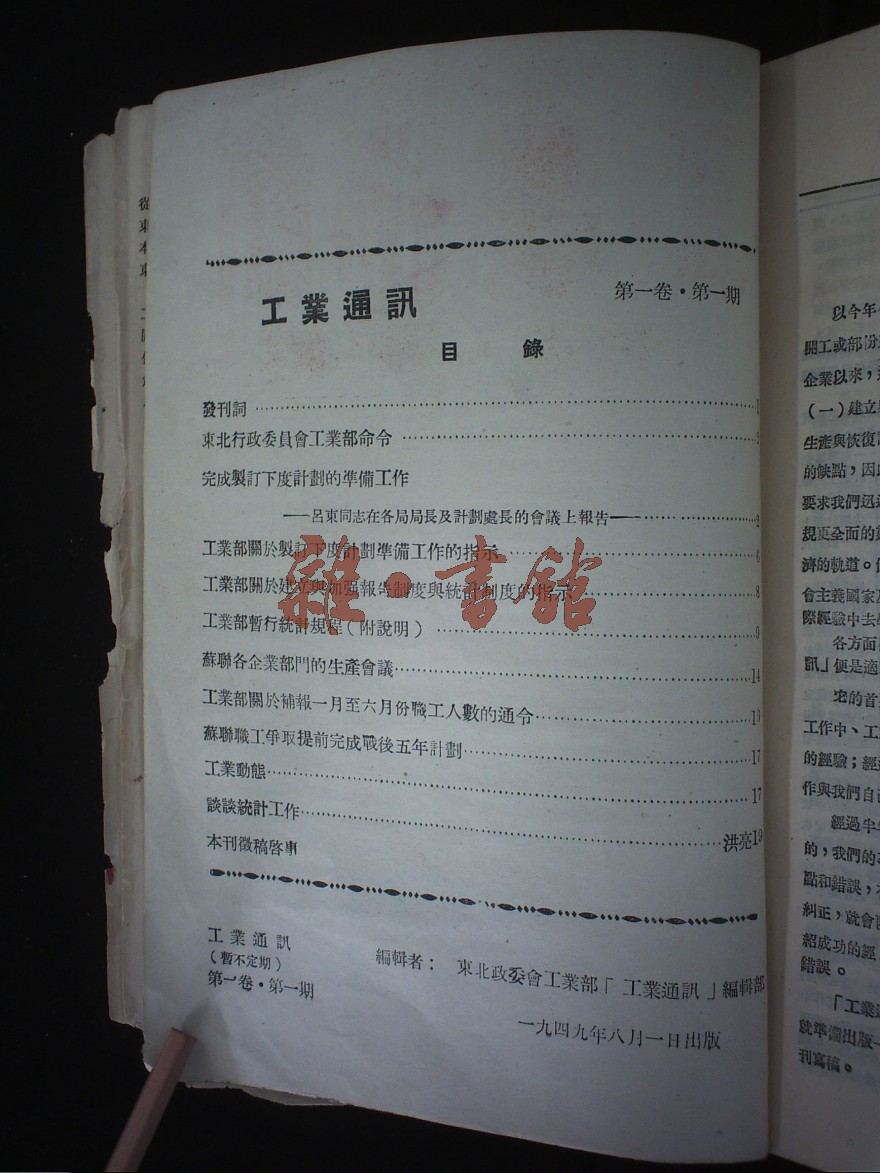 工業通訊
第一卷·第一期
目錄
發刊詞……1
東北行政委員會工業部命令……2
完成製訂下度計劃的準備工作
——呂東同志在各局局長及計劃處長的會議上報告——……2
工業部關於製訂下度計劃準備工作的指示……6
工業部關於建立與加强報告制度與統計制度的指示……8
工業部暫行統計規程(附說明)……9
蘇聯各企業部門的生產會議……14
工業部關於補報一月至六月份職工人數的通令……
蘇聯職工爭取提前完成戰後五年計劃……17
工業動態……17
談談統計工作……洪亮19
本刊徵稿啓事
工業通訊
(暫不定期)
第一卷·第一期
編輯者：東北政委會工業部「工業通訊」編輯部
一九四九年八月一日出版
雜·書館
以今年
開工或部份
企業以來，
(一)建立
生產與恢復
的缺點，因
要求我們迅
規更全面的
濟的軌道。
會主義國家
際經驗中去
各方面
訊」便是適
它的首
工作中、工
的經驗；經
作與我們自
經過半年
的，我們的
點和錯誤，
糾正，就會
紹成功的經
錯誤。
「工業
就準備出版
刊寫稿。